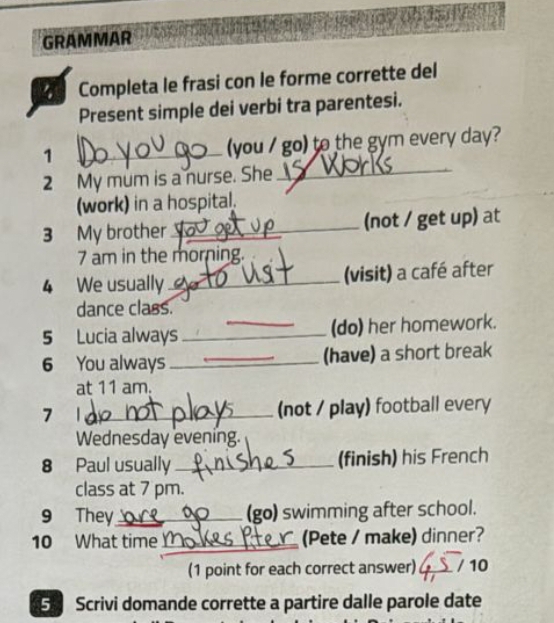 GRAMMAR
Completa le frasi con le forme corrette del
Present simple dei verbi tra parentesi.
1 Do you go (you / go) to the gym every day?
2 My mum is a nurse. She is works
(work) in a hospital.
3 My brother you get up (not / get up) at
7 am in the morning.
4 We usually go to visit (visit) a café after
dance class.
5 Lucia always (do) her homework.
6 You always (have) a short break
at 11 am.
7 I do not plays (not / play) football every
Wednesday evening.
8 Paul usually finishes (finish) his French
class at 7 pm.
9 They are go (go) swimming after school.
10 What time makes Pter (Pete / make) dinner?
(1 point for each correct answer) 4,5 / 10
5 Scrivi domande corrette a partire dalle parole date